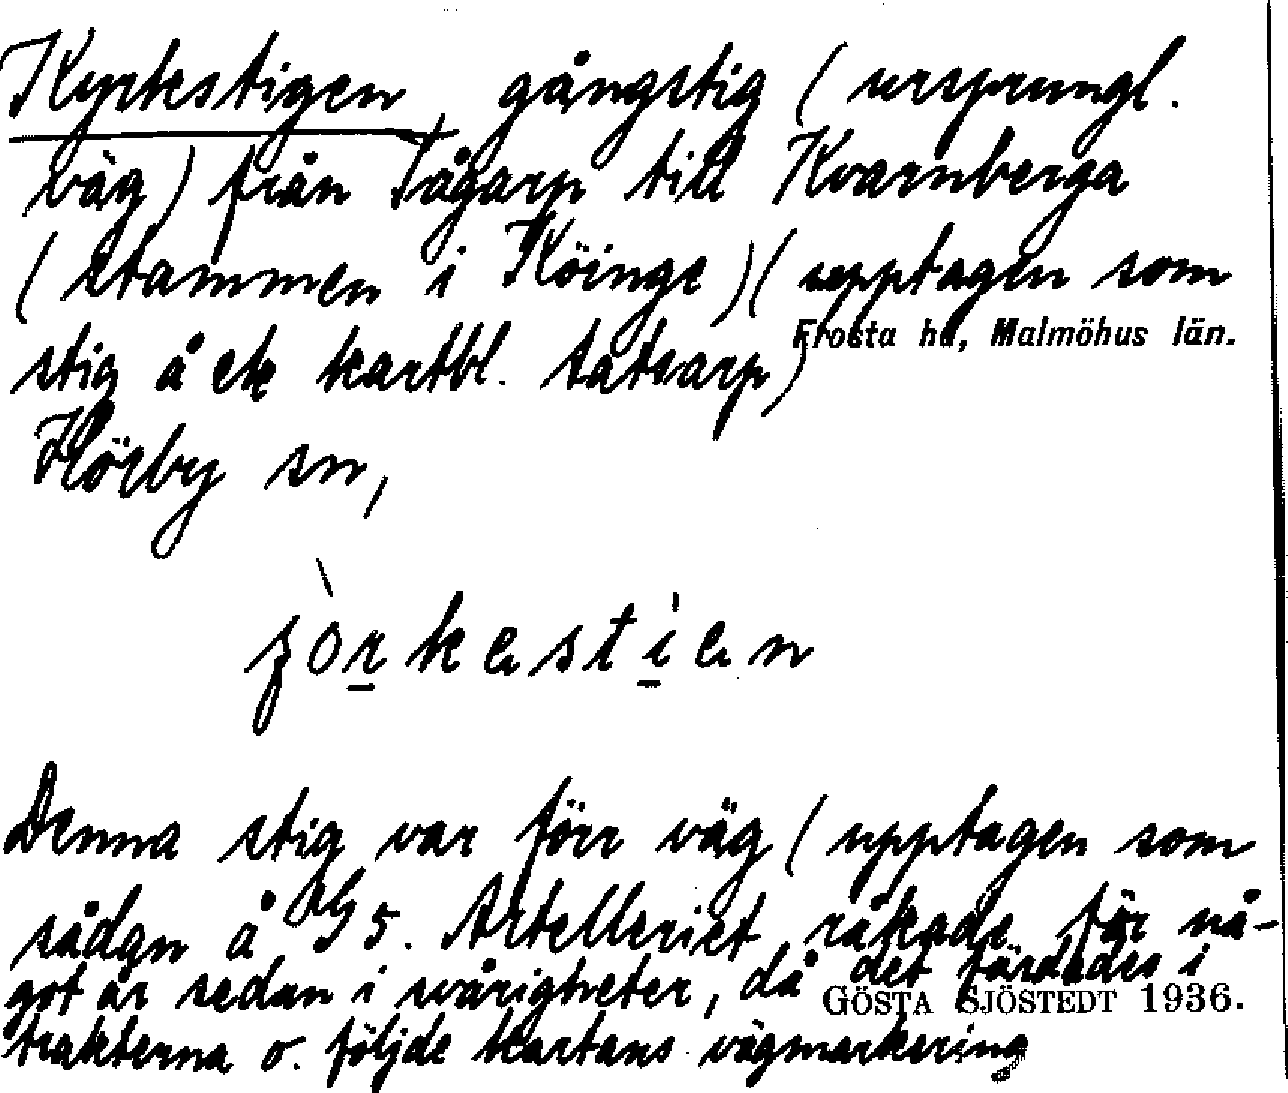 Kyrkestigen, gångstig (ursprungl.
väg) från Tågarp till Kvarnberga
(stammen i Köinge) (upptagen som
Frosta hd, Malmöhus län.
stig å ek kartbl. Satsarp)
Hörby sn,
Denna stig var förr väg (upptagen som
sådan å G5. Artelleriet råkade för nå-
got år sedan i svårigheter, då det färdades i
GÖSTA SJÖSTEDT 1936.
trakterna o. följde kartans vägmarkering